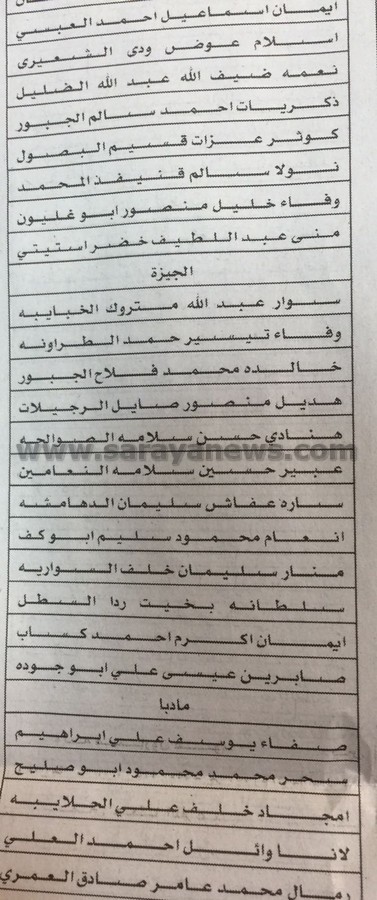 ايمان اسماعيل احمد العبسي
اسلام عوض ودي الشعيرى
نعمه ضيف الله عبد الله الضليل
ذكريات احمد سالم الجبور
كوثر عزات قسيم البصول
نولا سالم قنيفذ المحمد
وفاء خليل منصور ابو غليون
منى عبد اللطيف خضر استيتي
الجيزة
سوار عبد الله متروك الخبايبه
وفاء تيسير حمد الطراونه
خالده محمد فلاح الجبور
هديل منصور صايل الرجيلات
هنادي حسن سلامه الصوالحه
www.sarayanews.com
عبير حسين سلامه النعامين
ساره عفاش سليمان الدهامشه
انعام محمود سليم ابو كف
منار سليمان خلف السواريه
سلطانه بخيت ردا السطل
ايمان اكرم احمد كساب
صابرين عيسى علي ابو جوده
مادبا
صفاء يوسف علي ابراهيم
سحر محمد محمود ابو صليح
امجاد خلف علي الحلايبه
لانا وائل احمد العلي
رمال محمد عامر صادق العمري